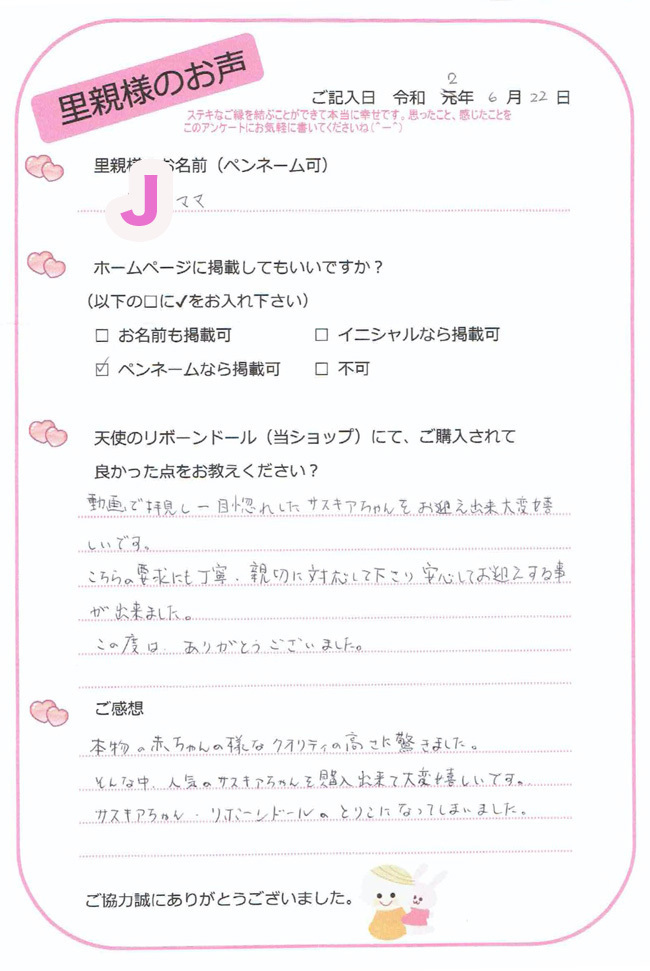 里親様のお声
ご記入日 令和 元年 2 6 月 22 日
ステキなご縁を結ぶことができて本当に幸せです。思ったこと、感じたことを
このアンケートにお気軽に書いてくださいね(^ー^)
里親様 お名前（ペンネーム可）
J ママ
ホームページに掲載してもいいですか？
（以下の□に✓をお入れ下さい）
□ お名前も掲載可 □ イニシャルなら掲載可
☑ ペンネームなら掲載可 □ 不可
天使のリボーンドール（当ショップ）にて、ご購入されて
良かった点をお教えください？
動画で拝見し一目惚れしたサスキアちゃんをお迎え出来大変嬉
しいです。
こちらの要求にも丁寧、親切に対応して下さり安心してお迎えする事
が出来ました。
この度は、ありがとうございました。
ご感想
本物の赤ちゃんの様なクオリティの高さに驚きました。
そんな中、人気のサスキアちゃんを購入出来て大変嬉しいです。
サスキアちゃん・リボーンドールのとりこになってしまいました。
ご協力誠にありがとうございました。